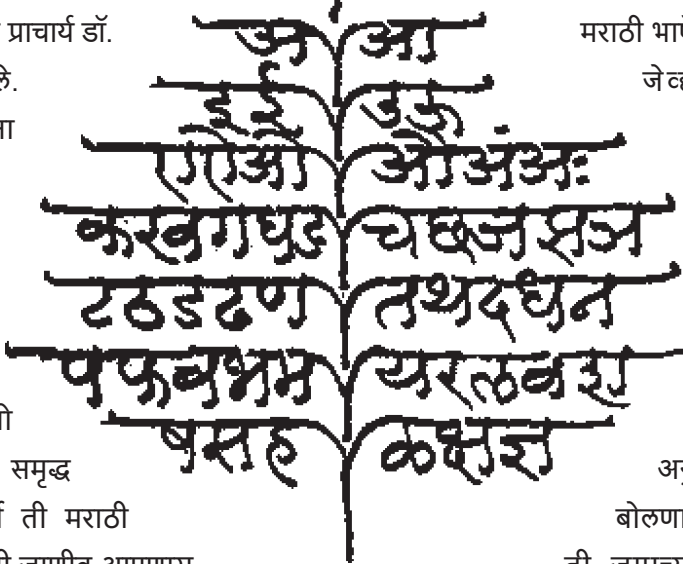 प्राचार्य डॉ.
मराठी
अ आ
इ ई उ ऊ
ए ऐ ओ औ अं अः
क ख ग घ ङ च छ ज झ ञ
ट ठ ड ढ ण त थ द ध न
प फ ब भ म य र ल व श
ष स ह ळ क्ष ज्ञ
समृद्ध
ती मराठी